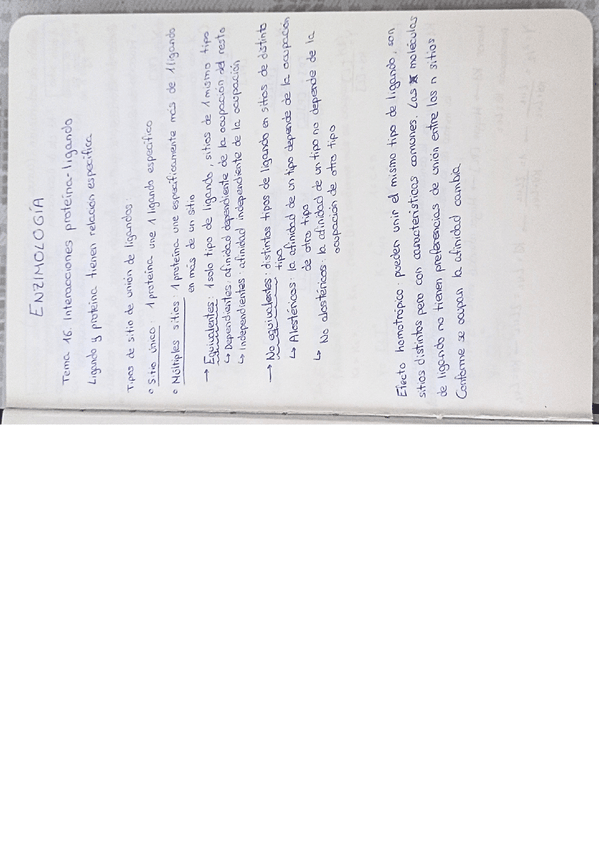 ENZIMOLOGÍA
Tema 16. Interacciones proteína-ligando
Ligando y proteína tienen relación específica
Tipos de sitio de unión de ligandos:
• Sitio único: 1 proteína une 1 ligando específico
• Múltiples sitios: 1 proteína une específicamente más de 1 ligando
en más de un sitio
→ Equivalentes: 1 solo tipo de ligando, sitios de 1 mismo tipo
↳ Dependientes: afinidad dependiente de la ocupación del resto
↳ Independientes: afinidad independiente de la ocupación
→ No equivalentes: distintos tipos de ligando en sitios de distinto
tipo
↳ Alostéricos: la afinidad de un tipo depende de la ocupación
de otro tipo
↳ No alostéricos: la afinidad de un tipo no depende de la
ocupación de otro tipo
Efecto homotrópico: pueden unir el mismo tipo de ligando, son
sitios distintos pero con características comunes. Las moléculas
de ligando no tienen preferencias de unión entre los n sitios.
Conforme se ocupan la afinidad cambia